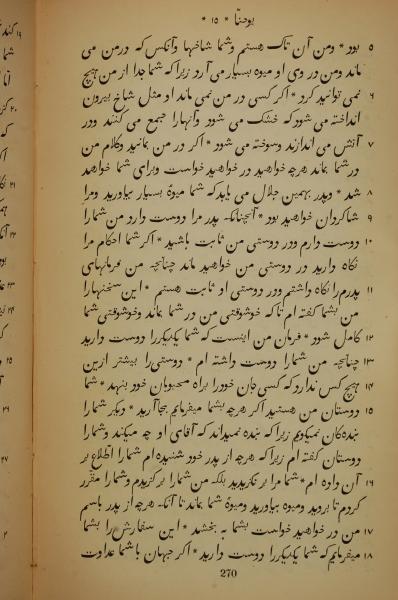 * ۱۵ * یوحنّا
۵ بود * ومن آن تاک هستم وشما شاخها وآنکس که درمن می
ماند ومن در وی او میوه بسیار می آرد زیرا که شما جدا از من هیچ
۶ نمی توانید کرد * اگر کسی در من نمی ماند او مثل شاخ بیرون
انداخته می شود که خشک می شود وآنهارا جمع می کنند ودر
۷ آتش می اندازند وسوخته می شود * اگر در من بمانید وکلام من
در شما بماند هرچه خواهید در خواهید خواست وبرای شما خواهد
۸ شد * وپدر بهمین جلال می یابد که شما میوهٔ بسیار بیاورید ومرا
۹ شاگردان خواهید بود * آنچنانکه پدر مرا دوست دارد من شمارا
۱۰ دوست دارم ودر دوستی من ثابت باشید * اگر شما احکام مرا
نگاه دارید در دوستی من خواهید ماند چنانچه من فرمانهای
۱۱ پدرم را نگاه داشتم ودر دوستی او ثابت هستم * این سخنهارا
من بشما گفته ام تا که خوشوقتی من در شما بماند وخوشوقتی شما
۱۲ کامل شود * فرمان من اینست که شما یکدیگررا دوست دارید
۱۳ چنانچه من شمارا دوست داشته ام * دوستی را بیشتر ازین
۱۴ هیچ کس ندارد که کسی جان خودرا براه محبوبان خود بنهد * شما
۱۵ دوستان من هستید اگر هرچه بشما میفرمایم بجا آرید * دیگر شمارا
بنده‌کان نمیگویم زیرا که بنده نمیداند که آقای او چه میکند وشمارا
دوستان گفته ام زیرا که هرچه از پدر خود شنیده ام شمارا اطّلاع بر
۱۶ آن داده ام * شما مرا برنگزیدید بلکه من شمارا برگزیدم وشمارا مقرّر
کردم تا بروید ومیوه بیاورید ومیوهٔ شما بماند تا آنکه هرچه از پدر باسم
۱۷ من در خواهید خواست بشما به بخشد * این سفارش را بشما
۱۸ میفرمایم که شما یکدیگررا دوست دارید * اگر جهان باشما عداوت
270